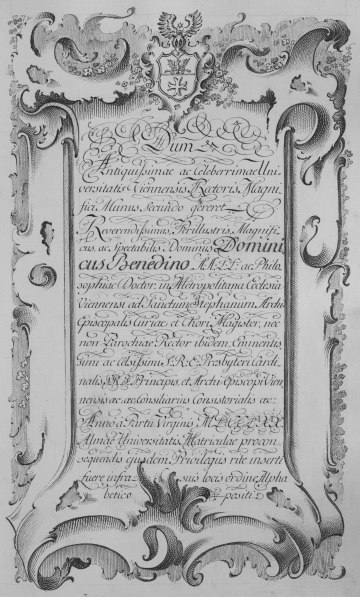 Dum
Antiquissimae ac Celeberrimae Uni-
versitatis Viennensis Rectoris Magni-
fici Munus Secundo gereret
Reverendissimus, Perillustris, Magnifi-
cus, ac Spectabilis Dominus Domini-
cus Benedino AA. LL. ac Philo-
sophiae Doctor, in Metropolitana Ecclesia
Viennensi ad Sanctum Stephanum, Archi-
Episcopalis Curiae et Chori Magister, nec
non Parochiae Rector ibidem, Eminentis-
simi ac Celsissimi S. R. E. Presbyteri Cardi-
nalis, S. R. I. Principis, et Archi Episcopi Vien-
nensis &c. &c. Consiliarius Consistorialis &c:
Anno à Partu Virginis
Almae Universitatis Matriculae pro con-
sequendis ejusdem Privilegiis rite inserti
fuere infra suis locis ordine Alpha-
betico positi